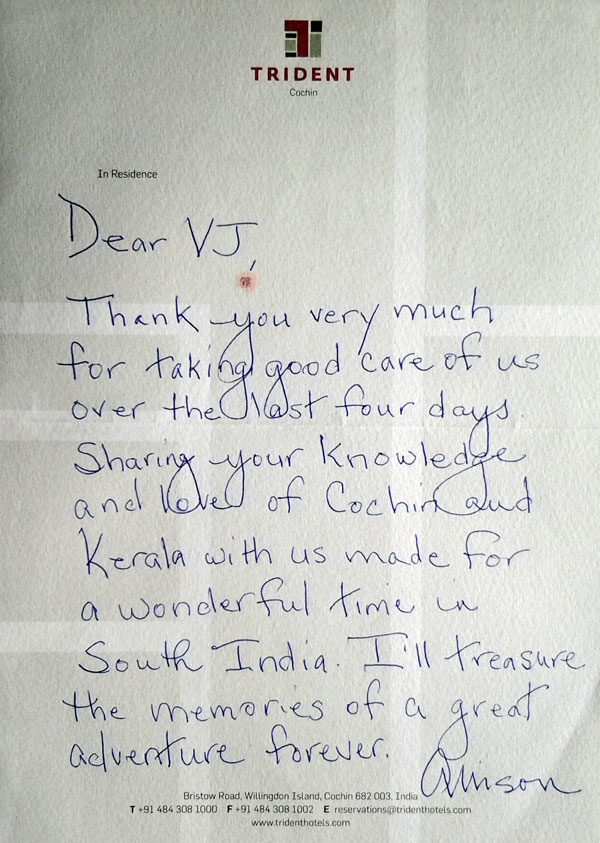 TRIDENT
Cochin
In Residence
Dear VJ,
Thank you very much
for taking good care of us
over the last four days.
Sharing your Knowledge
and love of Cochin and
Kerala with us made for
a wonderful time in
South India. I'll treasure
the memories of a great
adventure forever.
Bristow Road, Willingdon Island, Cochin 682 003. India
T +91 484 308 1000 F +91 484 308 1002 E reservations@tridenthotels.com
www.tridenthotels.com